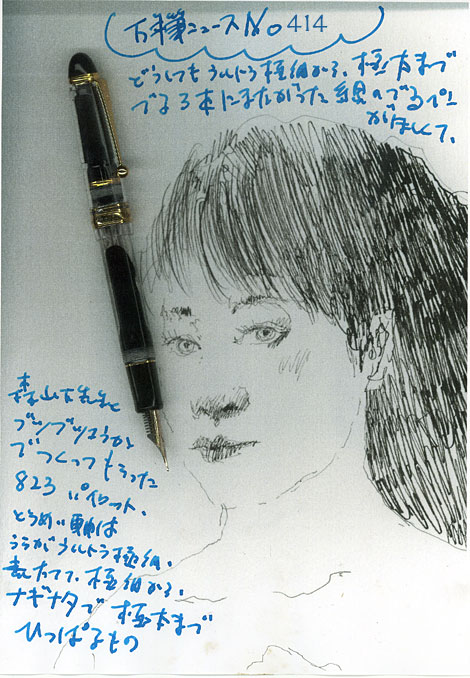 万年筆ニュース No 414
どうしても ウルトラ極細から、極太まで
でる3本にまたがった線のでるペン
がほしくて、
森山大先生と
ブツブツコウカン
でつくってもらった
823 パイロット、
とうめい軸は
うらがウルトラ極細、
表たてて、極細から、
ナギナタで 極太まで
ひっぱるもの